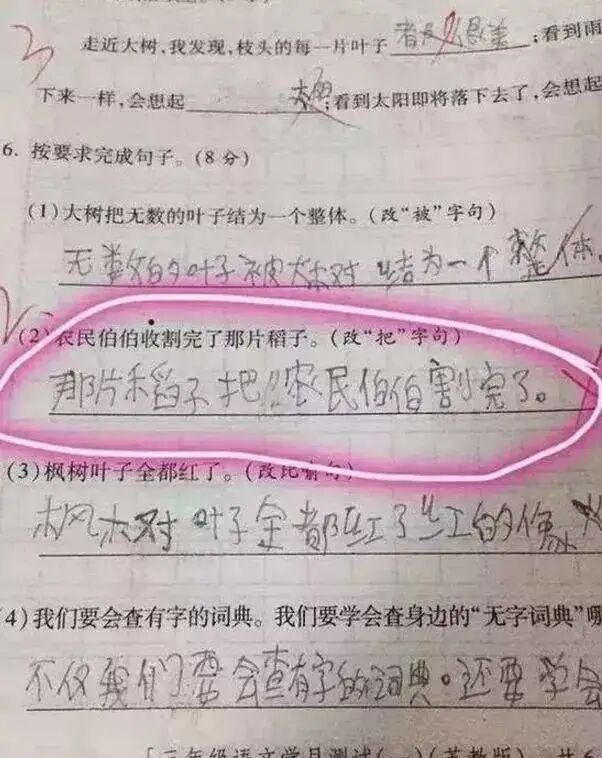 走近大树,我发现,枝头的每一片叶子 ;看到雨
下来一样,会想起 ;看到太阳即将落下去了,会想起
6. 按要求完成句子。(8分)
(1)大树把无数的叶子结为一个整体。(改“被”字句)
无数的叶子被大树结为一个整体。
(2)农民伯伯收割完了那片稻子。(改“把”字句)
那片稻子把农民伯伯割完了。
(3)枫树叶子全都红了。(改比喻句)
枫树叶子全都红了红的像火
4)我们要会查有字的词典。我们要学会查身边的“无字词典”哪
不仅我们要会查有字的词典。还要学会
[三年级语文学月测试(一)(苏教版) 共6